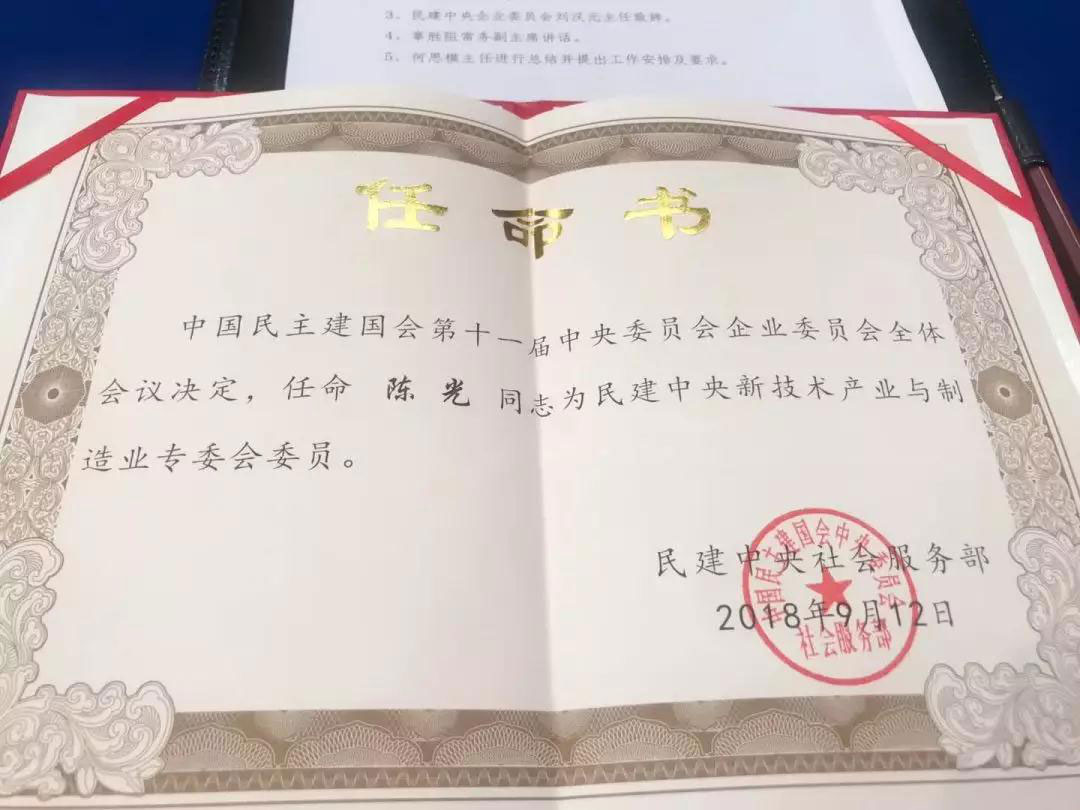 3、民建中央企业委员会刘汉元主任致辞。
4、辜胜阻常务副主席讲话。
5、何思模主任进行总结并提出工作安排及要求。
任命书
中国民主建国会第十一届中央委员会企业委员会全体
会议决定，任命 陈光 同志为民建中央新技术产业与制
造业专委会委员。
民建中央社会服务部
2018年9月12日
中国民主建国会中央委员会
社会服务部